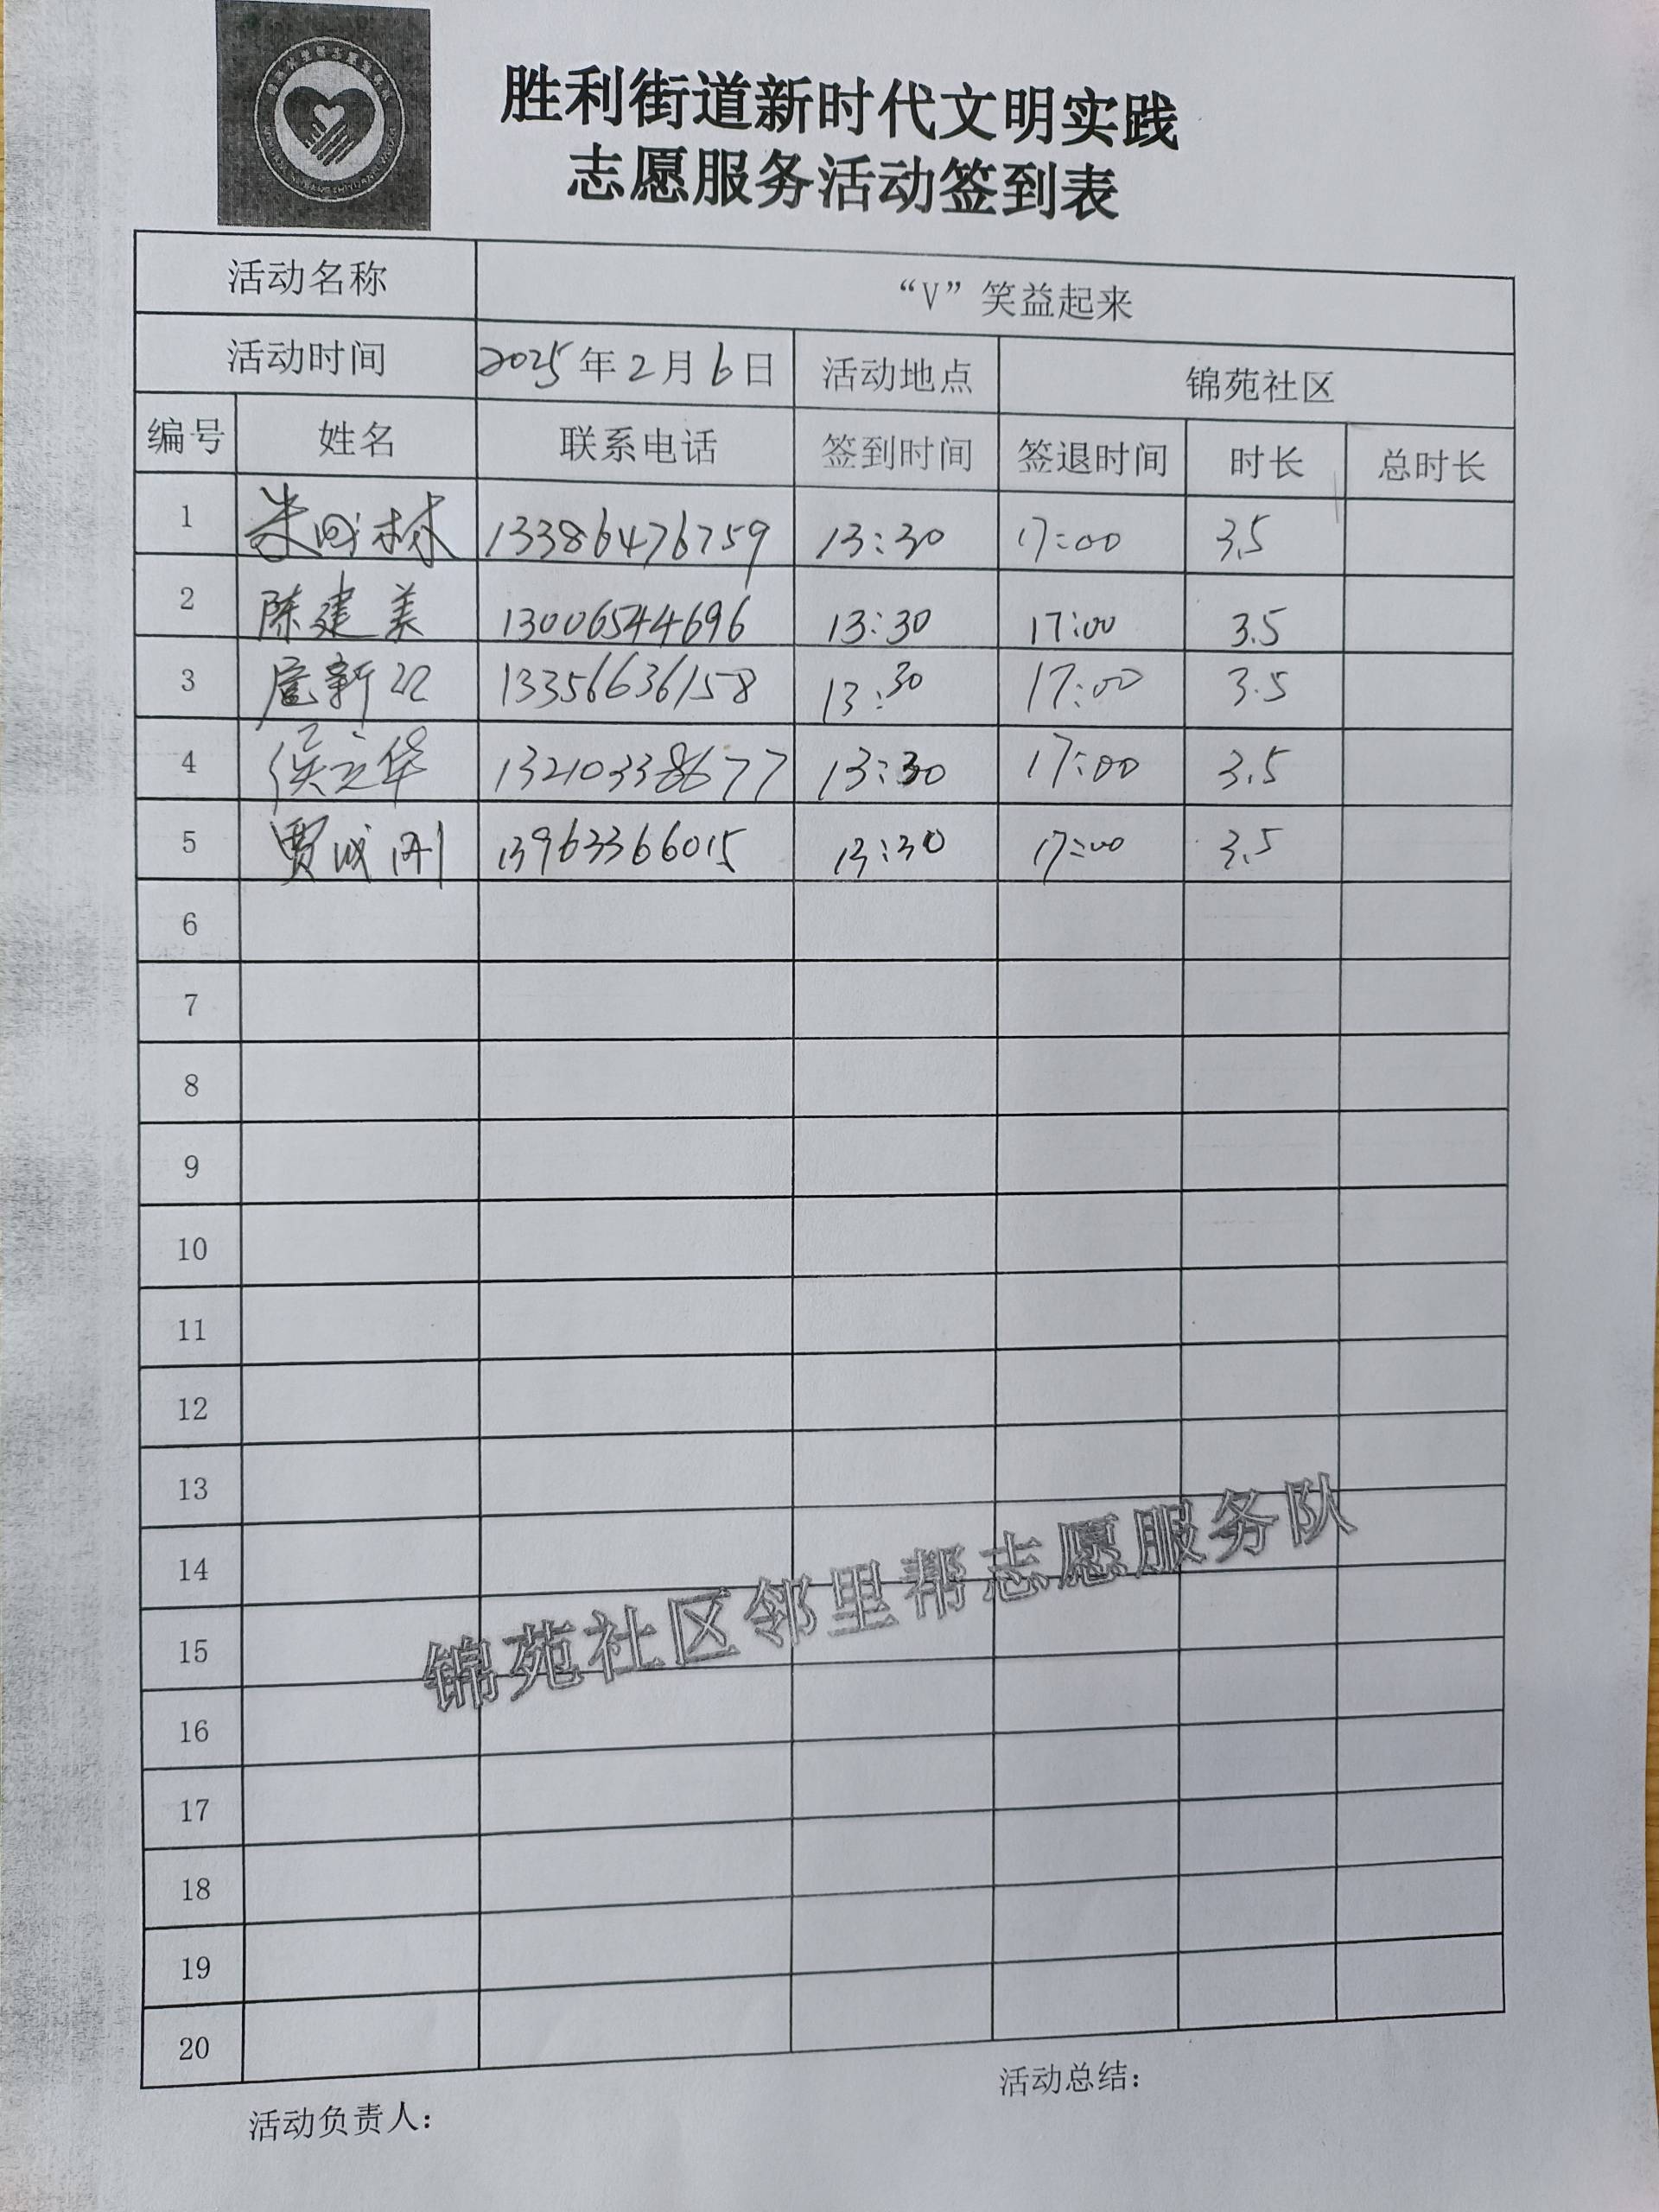 胜利街道新时代文明实践
志愿服务活动签到表
活动名称 “V”笑益起来
活动时间 2025年2月6日 活动地点 锦苑社区
编号 姓名 联系电话 签到时间 签退时间 时长 总时长
1 13386476759 13:30 17:00 3.5
2 陈建美 13006544696 13:30 17:00 3.5
3 13356636158 13:30 17:00 3.5
4 侯立华 13210338677 13:30 17:00 3.5
5 贾成刚 13963366015 13:30 17:00 3.5
6
7
8
9
10
11
12
13
14
15
16
17
18
19
20
锦苑社区邻里帮志愿服务队
活动负责人： 活动总结：